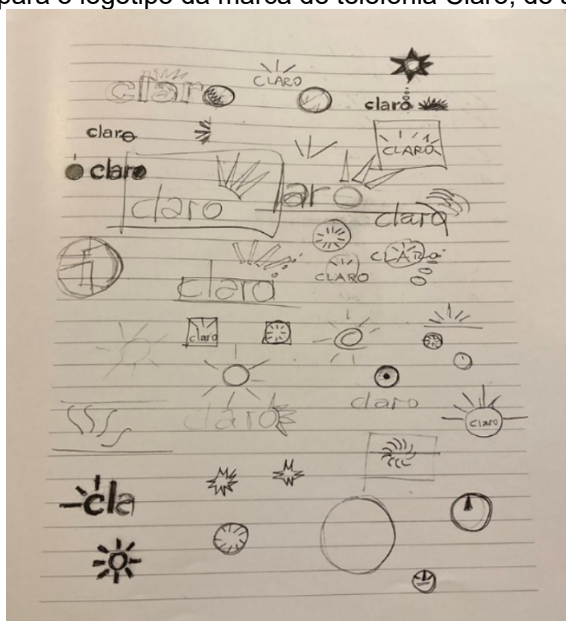 para o logotipo da marca de telefonia Claro, de
CLARO
claro
claro
claro
CLARO
claro
claro
laro
claro
CLARO
CLARO
claro
claro
claro
claro
claro
cla